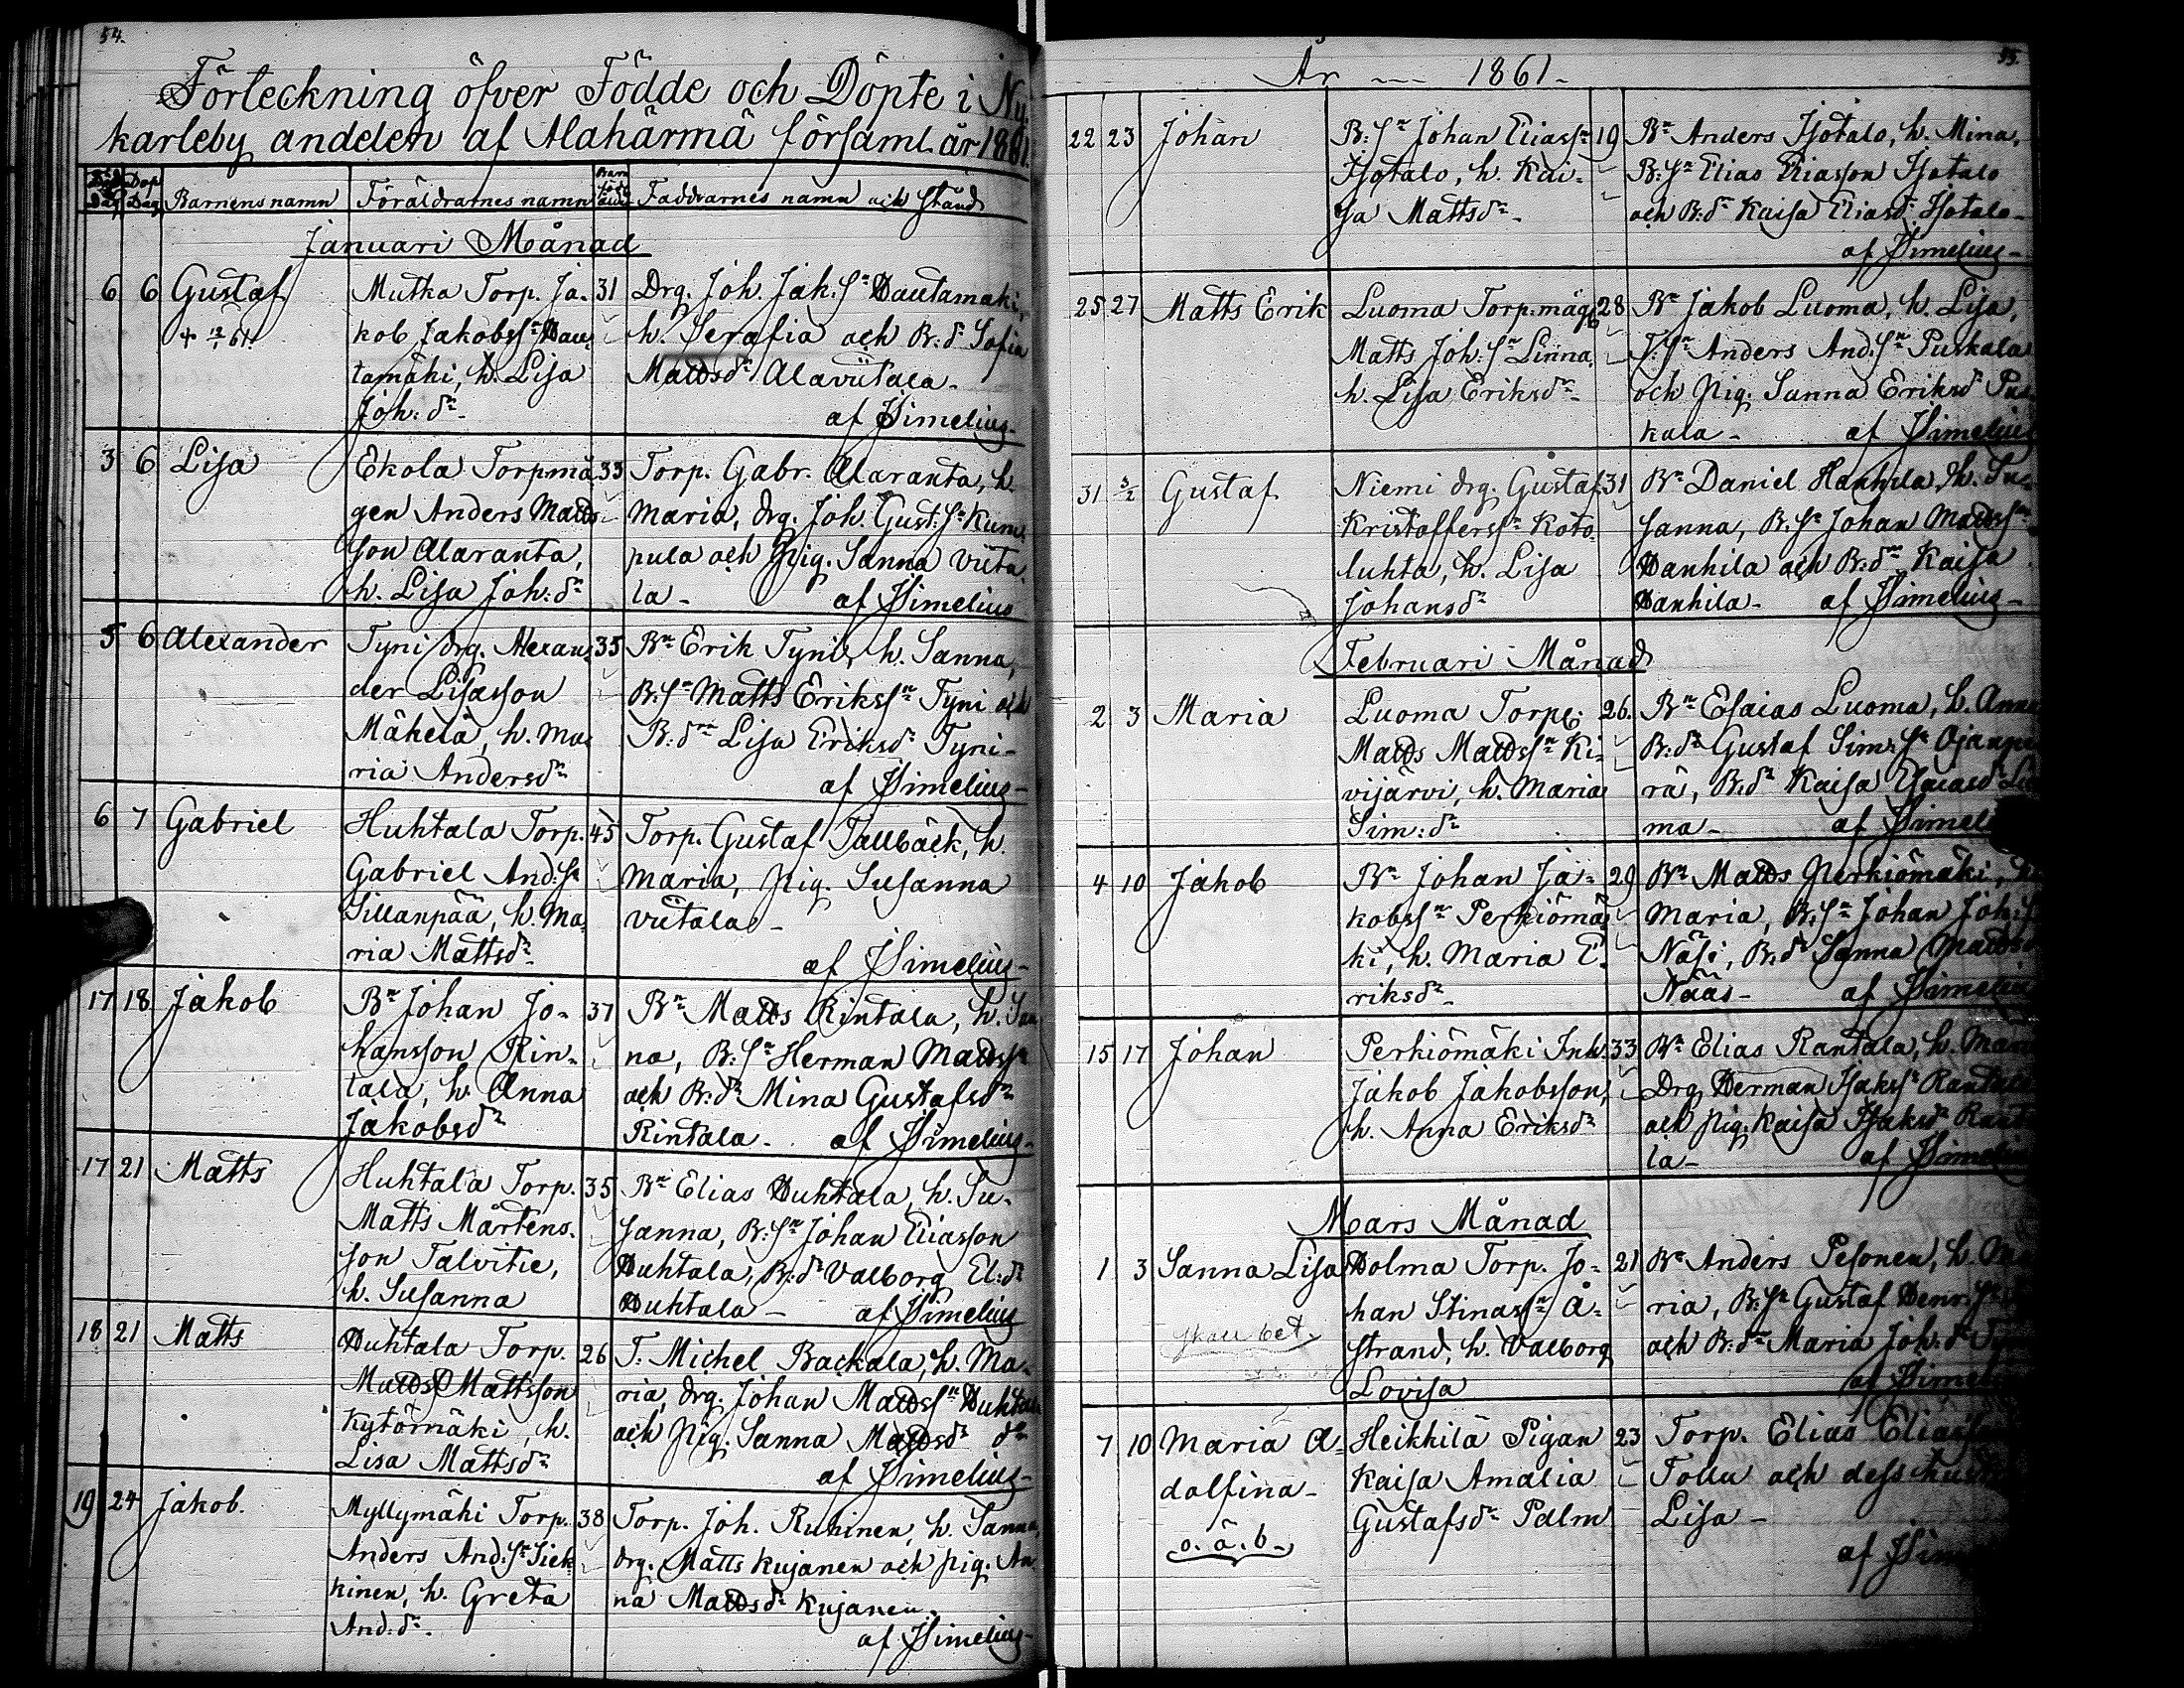 54.
Förteckning öfver Födde och Döpte i Ny-
karleby andelen af Alahärmä församl. år 1861.
Föd. Dag
Döp Dag
Barnens namn
Föräldrarnes namn
Faddrarnes namn och stånd
Januari Månad
6 6 Gustaf
Mutka Torp. Ja-
kob Jakobsson Hau-
tamäki, h. Lisa
Joh:dr
31
Drg. Joh. Jak:sn Hautamäki,
h. Serafia och B:dr Sofia
Mattsdr Alaviitala-
af HSimelius-
3 6 Lisa
Ekola Torpmå-
gen Anders Matts-
son Alaranta,
h. Lisa Joh:dr
33
Torp. Gabr. Alaranta, h.
Maria, drg. Joh. Gust:sn Kum-
pula och Pig. Sanna Viita-
la- af HSimelius
5 6 Alexander
Tyni drg. Alexan-
der Lisasson
Mäkelä, h. Ma-
ria Andersdr
35
Bn Erik Tyni, h. Sanna,
B:sn Matts Erikssn Tyni och
B:dr Lisa Eriksdr Tyni-
af HSimelius-
6 7 Gabriel
Huhtala Torp.
Gabriel And:sn
Sillanpää, h. Ma-
ria Mattsdr
45
Torp. Gustaf Tallbäck, h.
Maria, Pig. Susanna
Viitala-
af HSimelius-
17 18 Jakob
Bn Johan Jo-
hansson Rin-
tala, h. Anna
Jakobsdr
37
Bn Matts Rintala, h. San-
na, B:sn Herman Mattssn
och B:dr Mina Gustafsdr
Rintala- af HSimelius-
17 21 Matts
Huhtala Torp.
Matts Mårtens-
son Talvitie,
h. Susanna
35
Bn Elias Huhtala, h. Su-
sanna, B:sn Johan Eliasson
Huhtala, B:dr Valborg El:dr
Huhtala- af HSimelius
18 21 Matts
Huhtala Torp.
Matts Mattsson
Kytömäki, h.
Lisa Mattsdr
26
T. Michel Backala, h. Ma-
ria, drg. Johan Mattssn Huhtala
och Pig. Sanna Mattsdr do
af HSimelius-
19 24 Jakob.
Myllymäki Torp.
Anders And:sn Siek-
kinen, h. Greta
And:dr.
38
Torp. Joh. Ruhinen, h. Sanna,
drg. Matts Kujanen och pig. An-
na Mattsdr Kujanen.
af HSimelius-
55.
År — 1861-
22 23 Johan
B:sn Johan Eliassn
Isotalo, h. Kai-
sa Mattsdr-
19
Bn Anders Isotalo, h. Mina,
B:sn Elias Eliasson Isotalo
och B:dr Kaisa Eliasdr Isotalo-
af HSimelius-
25 27 Matts Erik
Luoma Torp.måg
Matts Joh:sn Linna,
h. Lisa Eriksdr-
28
Bn Jakob Luoma, h. Lisa,
T:sn Anders And:sn Puskala
och Pig. Sanna Eriksdr Pus-
kala- af HSimelius
31 3/2 Gustaf
Niemi drg. Gustaf
Kristofferssn Koto-
luhta, h. Lisa
Johansdr
31
Bn Daniel Hanhila, h. Su-
sanna, B:sn Johan Mattssn
Hanhila och B:dr Kaisa
Hanhila- af HSimelius-
Februari Månad
2 3 Maria
Luoma Torp.
Matts Mattssn Ki-
vijärvi, h. Maria
Sim:dr
26.
Bn Esaias Luoma, h. Anna
B:dr Gustaf Sim:sn Ojanpe-
rä, B:dr Kaisa Esaiasdr Luo-
ma- af HSimeli
4 10 Jakob
Bn Johan Ja-
kobssn Perkiömä-
ki, h. Maria E-
riksdr-
29
Bn Matts Perkiömäki, h.
Maria, B:sn Johan Joh:s
Näsi, B:dr Sanna Mattsd
Nääs- af HSimeliu
15 17 Johan
Perkiömäki Inh.
Jakob Jakobsson,
h. Anna Eriksdr
33
Bn Elias Rantala, h. Mari
Drg Herman Isakssn Rantala
och Pig. Kaisa Isaksdr Ranta-
la- af HSimelius
Mars Månad
1 3 Sanna Lisa
Holma Torp. Jo-
han Stinassn Å-
strand, h. Valborg
Lovisa
21
Bn Anders Pesonen, h. Ma-
ria, B:sn Gustaf Henr:sn
och B:dr Maria Joh:dr
af HSimel
7 10 Maria A-
dolfina-
o. ä. b-
Heikkilä Pigan
Kaisa Amalia
Gustafsdr Palm
23
Torp. Elias Eliass
Tollu och dess hust
Lisa-
af HSim